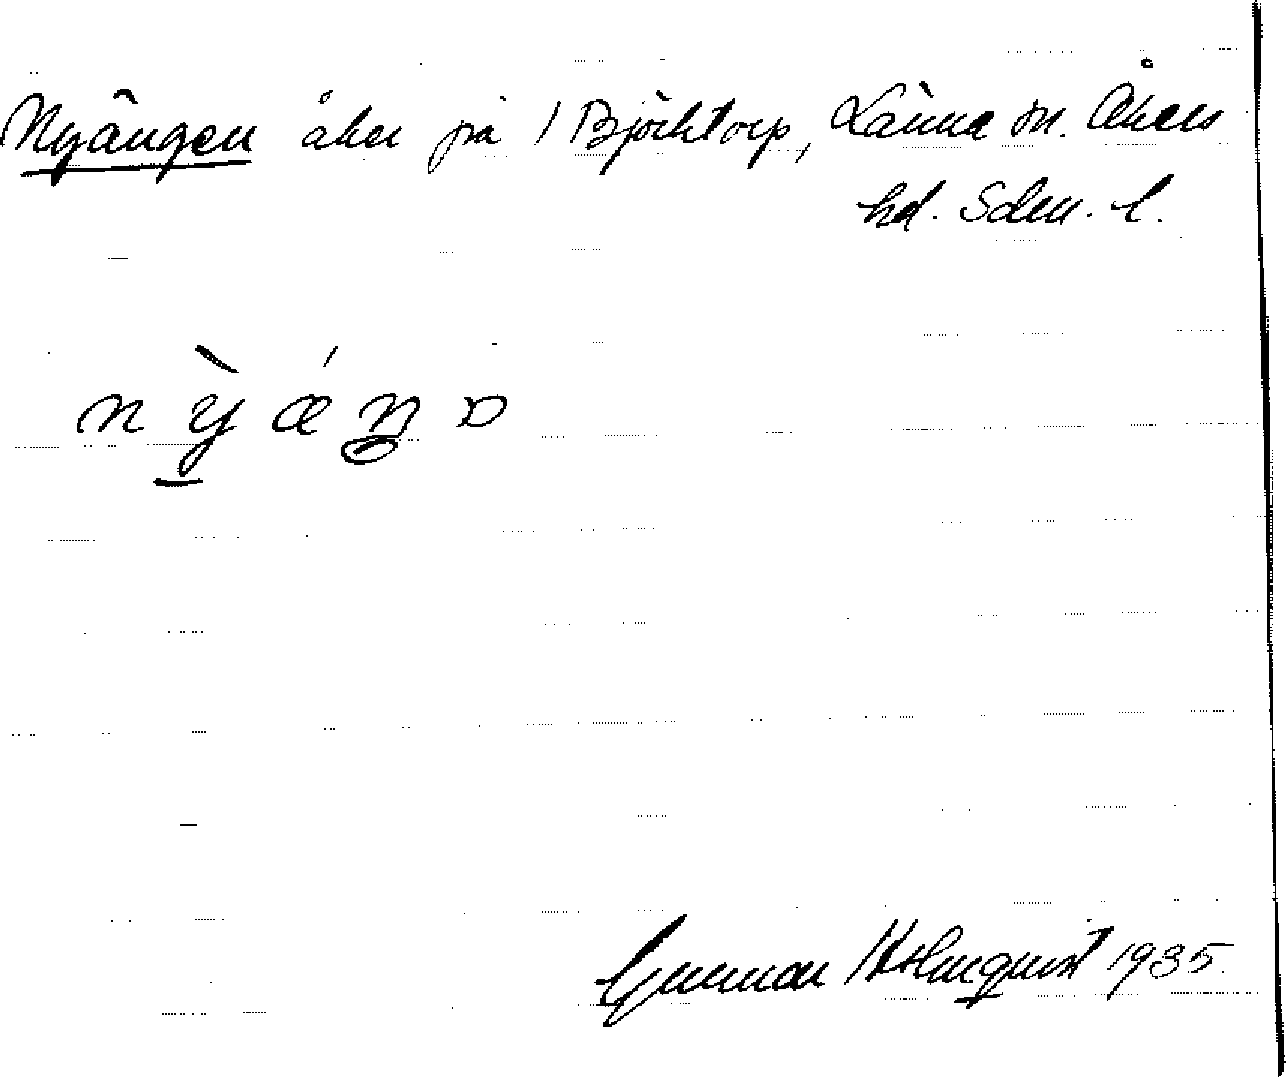 Nyängen åker på 1 Björktorp, Länna sn. Åkers
hd. Södm. l.
nỳǽŋɒ
Gunnar Holmquist 1935.